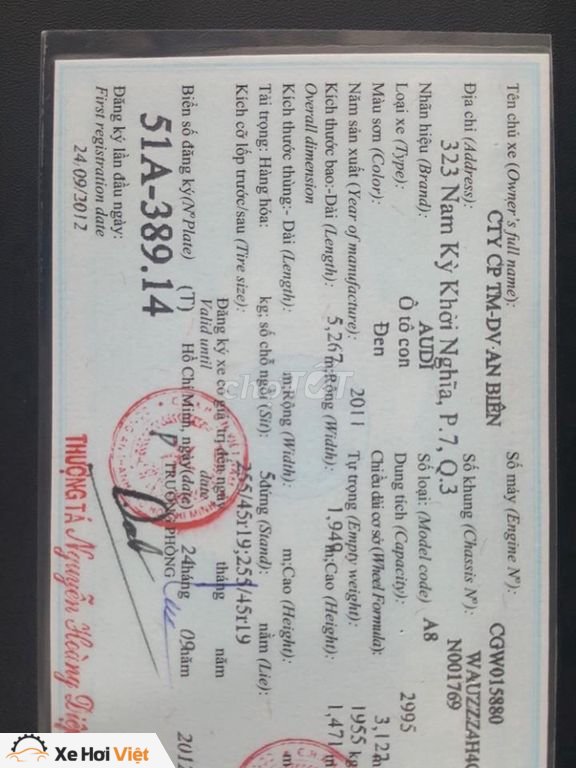 Tên chủ xe (Owner's full name):
CTY CP TM-DV-AN BIÊN
Địa chỉ (Address):
323 Nam Kỳ Khời Nghĩa, P.7, Q.3
Nhãn hiệu (Brand): AUDI Số loại: (Model code) A8
Loại xe (Type): Ô tô con
Màu sơn (Color): Đen
Năm sản xuất (Year of manufacture): 2011
Số máy (Engine Nº): CGW015880
Số khung (Chassis Nº): WAUZZZ4H4C
N001769
Dung tích (Capacity): 2995
Chiều dài cơ sở (Wheel Formula): 3,122 m
Tự trọng (Empty weight): 1955 kg
Kích thước bao:-Dài (Length): 5,267 m;Rộng (Width): 1,949 m;Cao (Height): 1,471
Overall dimension
Kích thước thùng:- Dài (Length): m;Rộng (Width): m;Cao (Height):
Tải trọng: Hàng hóa: kg; số chỗ ngồi (Sit): 5 đứng (Stand): nằm (Lie):
Kích cỡ lốp trước/sau (Tire size): 255/45r19;255/45r19
Đăng ký xe có giá trị đến ngày tháng năm
Valid until date
Biển số đăng ký(Nº Plate) (T) Hồ Chí Minh, ngày(date) 24 tháng 09 năm 2012
51A-389.14
TRƯỞNG PHÒNG
Đăng ký lần đầu ngày:
First registration date
24/09/3012
THƯỢNG TÁ Nguyễn Hoàng Diệp
choTỐT
Xe Hơi Việt